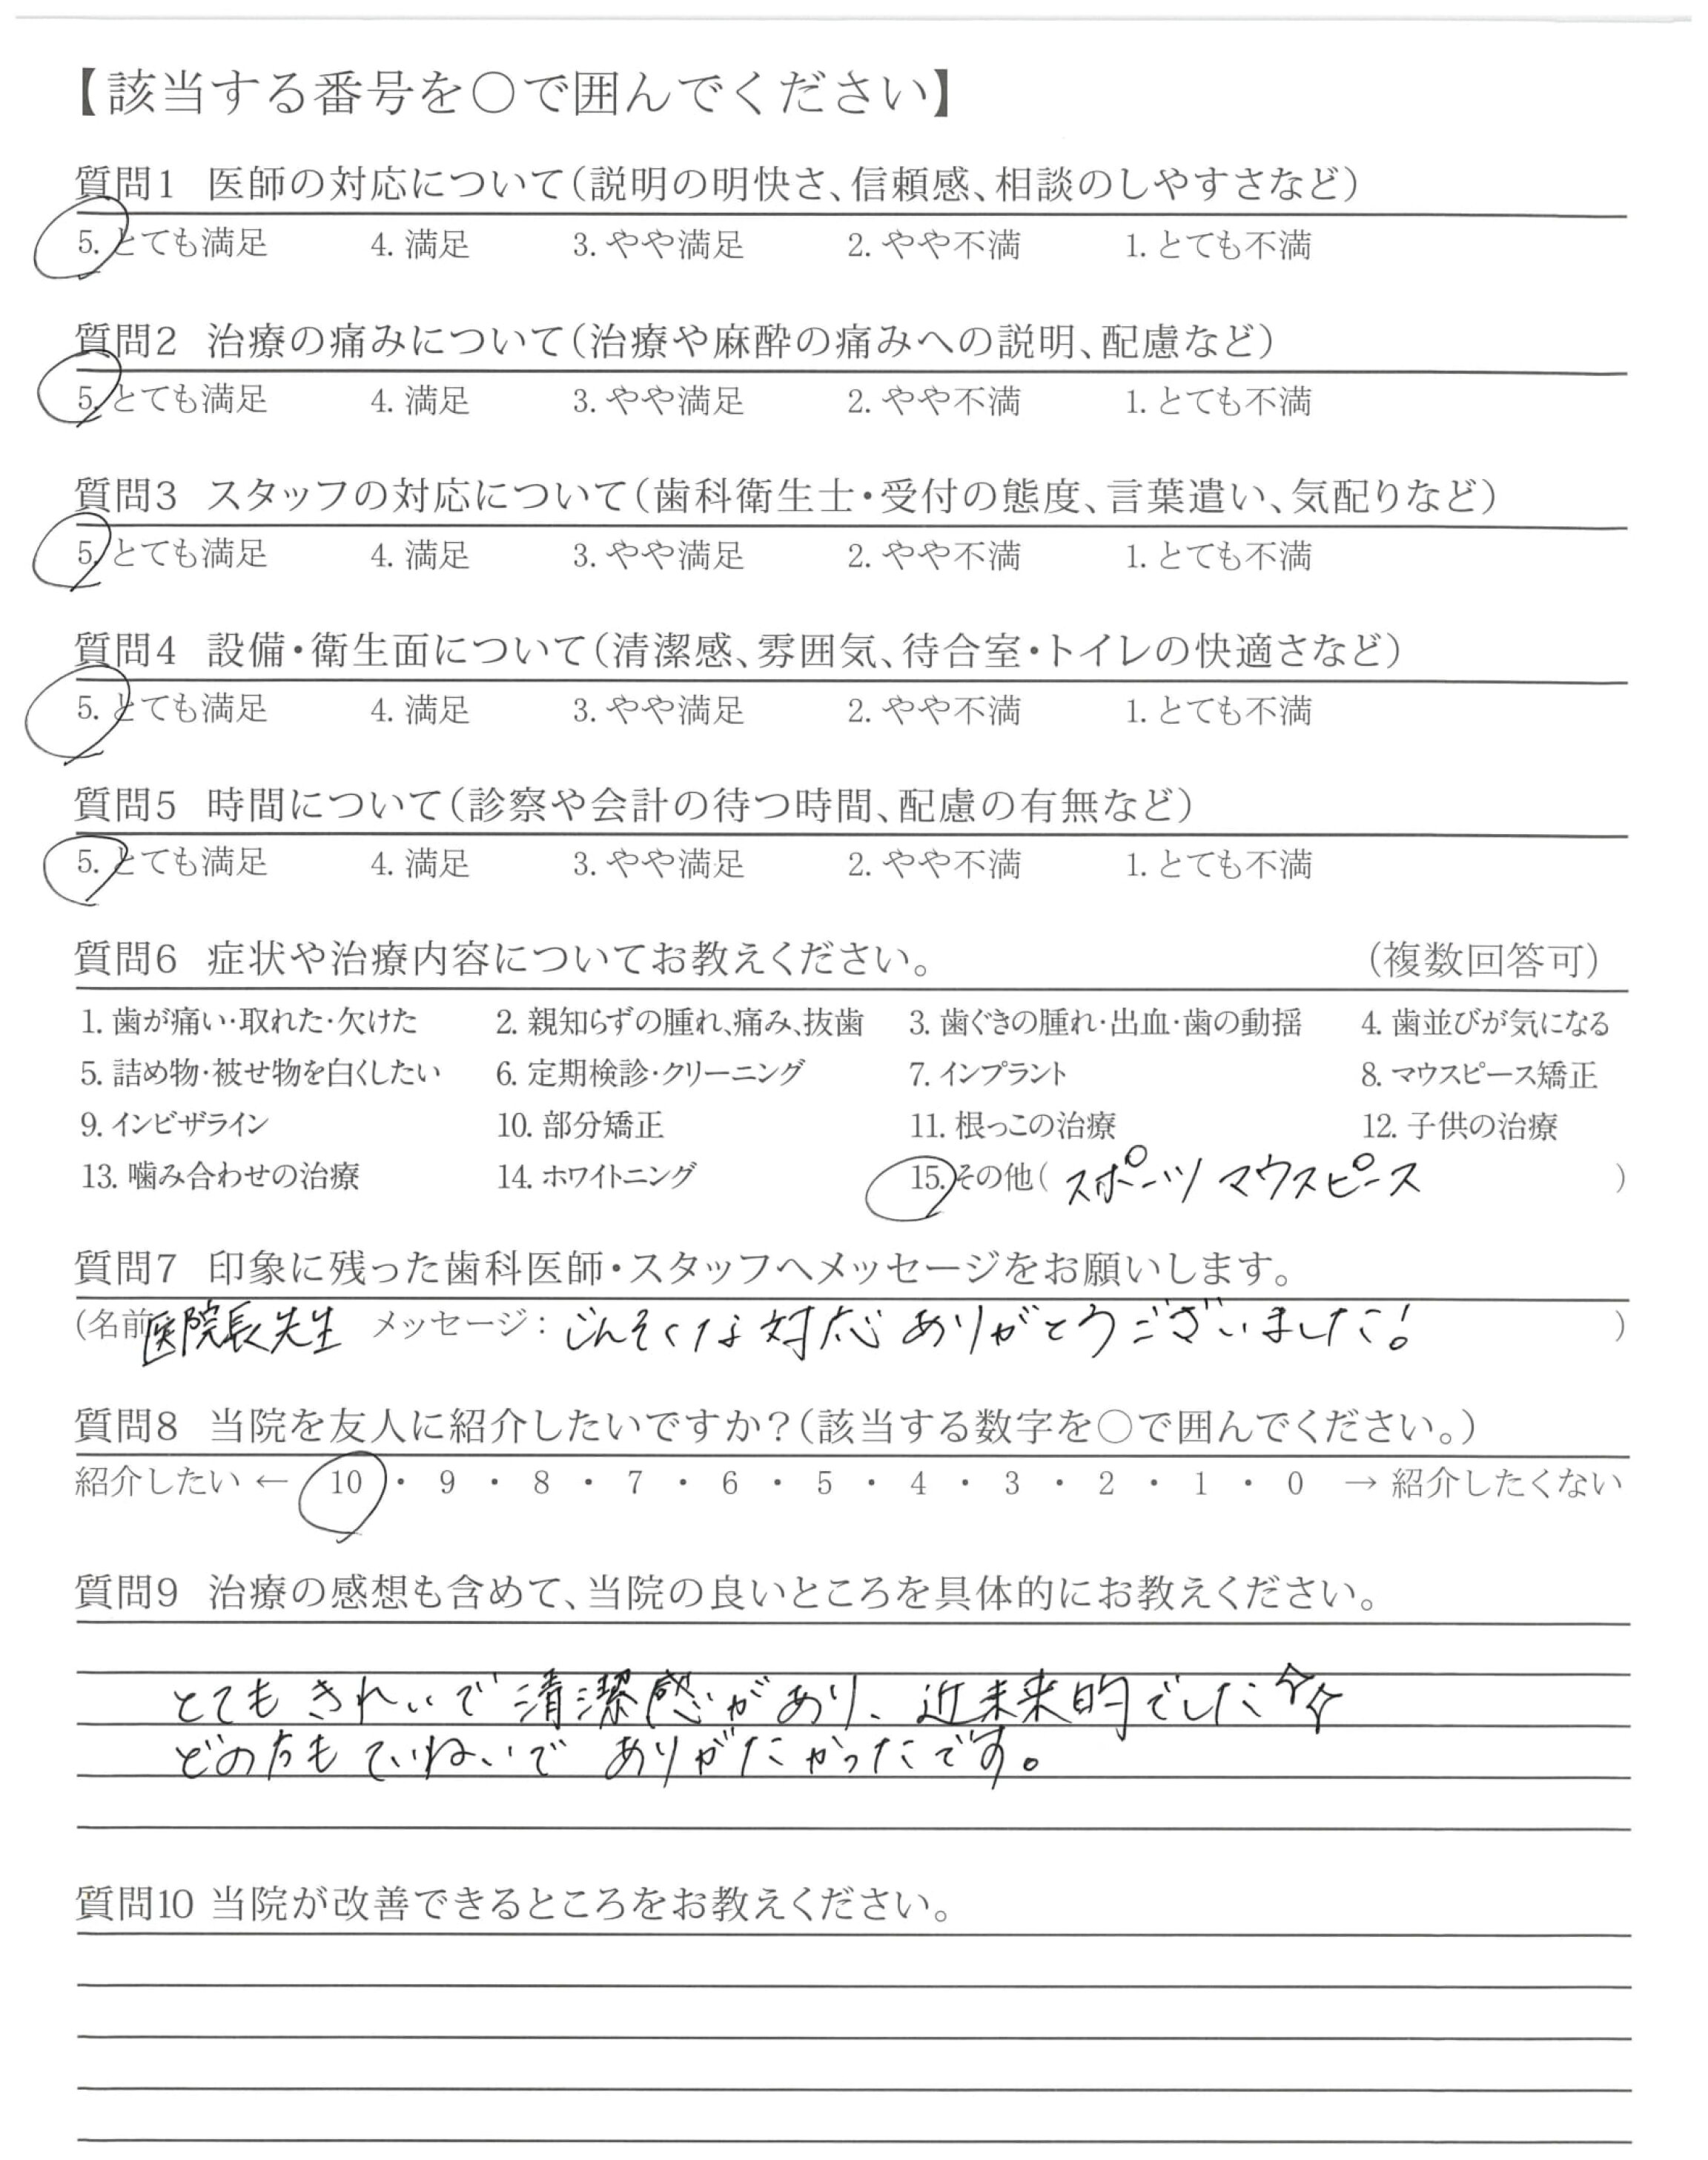 【該当する番号を○で囲んでください】
質問1 医師の対応について(説明の明快さ、信頼感、相談のしやすさなど)
5. とても満足 4. 満足 3. やや満足 2. やや不満 1. とても不満
質問2 治療の痛みについて(治療や麻酔の痛みへの説明、配慮など)
5. とても満足 4. 満足 3. やや満足 2. やや不満 1. とても不満
質問3 スタッフの対応について(歯科衛生士・受付の態度、言葉遣い、気配りなど)
5. とても満足 4. 満足 3. やや満足 2. やや不満 1. とても不満
質問4 設備・衛生面について(清潔感、雰囲気、待合室・トイレの快適さなど)
5. とても満足 4. 満足 3. やや満足 2. やや不満 1. とても不満
質問5 時間について(診察や会計の待つ時間、配慮の有無など)
5. とても満足 4. 満足 3. やや満足 2. やや不満 1. とても不満
質問6 症状や治療内容についてお教えください。 (複数回答可)
1. 歯が痛い・取れた・欠けた 2. 親知らずの腫れ、痛み、抜歯 3. 歯ぐきの腫れ・出血・歯の動揺 4. 歯並びが気になる
5. 詰め物・被せ物を白くしたい 6. 定期検診・クリーニング 7. インプラント 8. マウスピース矯正
9. インビザライン 10. 部分矯正 11. 根っこの治療 12. 子供の治療
13. 噛み合わせの治療 14. ホワイトニング 15. その他( スポーツ マウスピース )
質問7 印象に残った歯科医師・スタッフへメッセージをお願いします。
(名前 医院長先生 メッセージ: じんそくな対応 ありがとうございました! )
質問8 当院を友人に紹介したいですか?(該当する数字を○で囲んでください。)
紹介したい ← 10 ・ 9 ・ 8 ・ 7 ・ 6 ・ 5 ・ 4 ・ 3 ・ 2 ・ 1 ・ 0 → 紹介したくない
質問9 治療の感想も含めて、当院の良いところを具体的にお教えください。
とても きれいで 清潔感があり、近未来的でした☆☆
どの方も ていねいで ありがたかったです。
質問10 当院が改善できるところをお教えください。